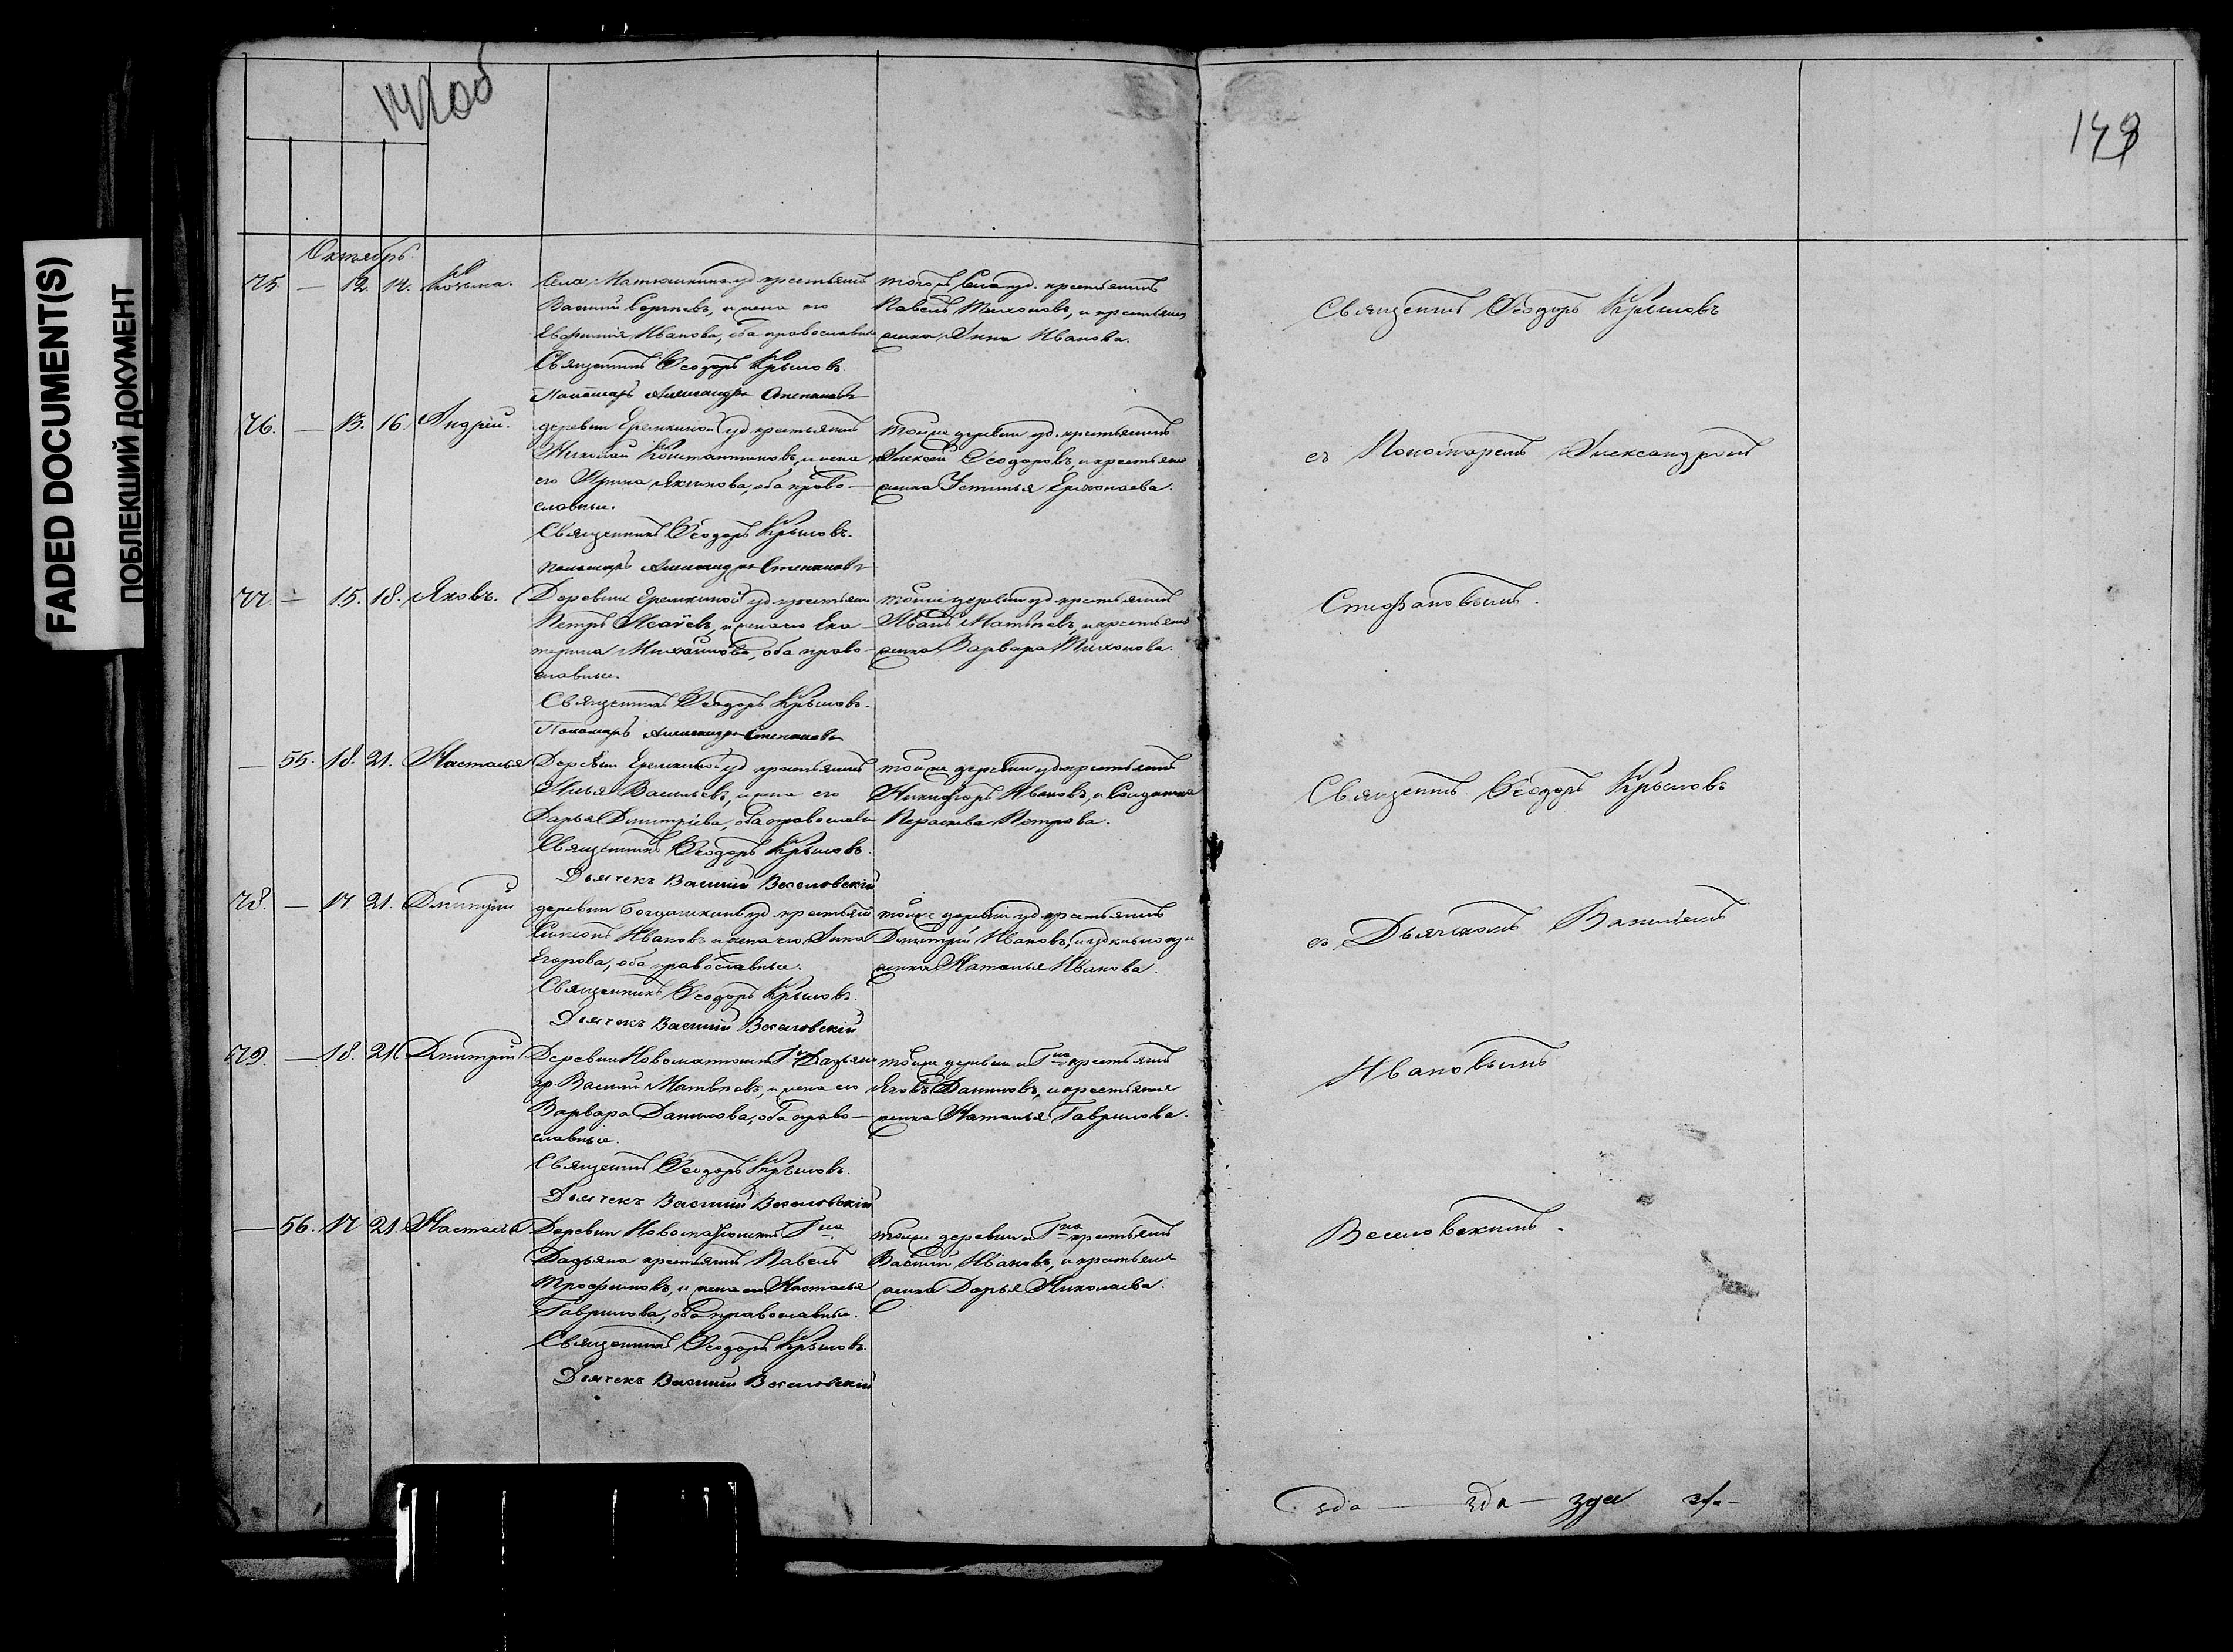 FADED DOCUMENT(S)
ПОБЛЕКШИЙ ДОКУМЕНТ
149
Октябрь.
75. — 12. 14. Козьма.
Села Матюшкина уд. крестьянинъ
Василій Сергѣевъ, и жена его
Евфимія Иванова, оба православные
Священникъ Ѳеодоръ Крыловъ.
Пономарь Александръ Степановъ
тогожъ села уд. крестьянинъ
Павелъ Тихоновъ, и крестьян
ская Анна Иванова.
Священникъ Ѳеодоръ Крыловъ
76. — 13. 16. Андрей.
деревни Еремкиной уд. крестьянинъ
Николай Константиновъ, и жена
его Ирина Якимова, оба право-
славные.
Священникъ Ѳеодоръ Крыловъ.
Пономарь Александръ Степановъ
тойже деревни уд. крестьянинъ
Алексѣй Ѳеодоровъ, и крестьян
Устинья
съ Пономаремъ Александромъ
77. — 15. 18. Яковъ.
Деревни Еремкиной уд. крестьян
Петръ Исаевъ, и жена его Ека-
терина Михайлова, оба право-
славные.
Священникъ Ѳеодоръ Крыловъ.
Пономарь Александръ Степановъ
тойже деревни уд. крестьянинъ
Иванъ Матвѣевъ, и крестьян
Варвара Тихонова.
Степановымъ.
— 55. 18. 21. Настасья
Деревни Еремкиной уд. крестьянинъ
Илья Васильевъ, и жена его
Дарья Дмитріева, оба православн
Священникъ Ѳеодоръ Крыловъ.
Дьячекъ Василій Веселовскій
тойже деревни уд. крестьянинъ
Никифоръ Ивановъ, и Солдатка
Параскева Петрова.
Священникъ Ѳеодоръ Крыловъ
78. — 17 21. Дмитрій
деревни Богдашкины уд. крестьян
Симеонъ Ивановъ и жена его Анна
Егорова, оба православные.
Священникъ Ѳеодоръ Крыловъ.
Дьячекъ Василій Веселовскій
тойже деревни уд. крестьянинъ
Дмитрій Ивановъ, и
Наталья Иванова.
съ Дьячкомъ Василіемъ
79. — 18. 21. Дмитрій
Деревни Гна Дадьяна
кр. Василій Матвѣевъ, и жена его
Варвара Данилова, оба право-
славные.
Священникъ Ѳеодоръ Крыловъ.
Дьячекъ Василій Веселовскій
тойже деревни и Гна крестьянинъ
Яковъ Даниловъ, и крестьян
Наталья Гаврилова.
Ивановымъ
— 56. 17 21. Настасья
Деревни Гна
Дадьяна крестьянинъ Павелъ
Трофимовъ, и жена его Настасья
Гаврилова, оба православные.
Священникъ Ѳеодоръ Крыловъ.
Дьячекъ Василій Веселовскій
тойже деревни и Гна крестьянинъ
Василій Ивановъ, и крестьян
Дарья Николаева.
Веселовскимъ.